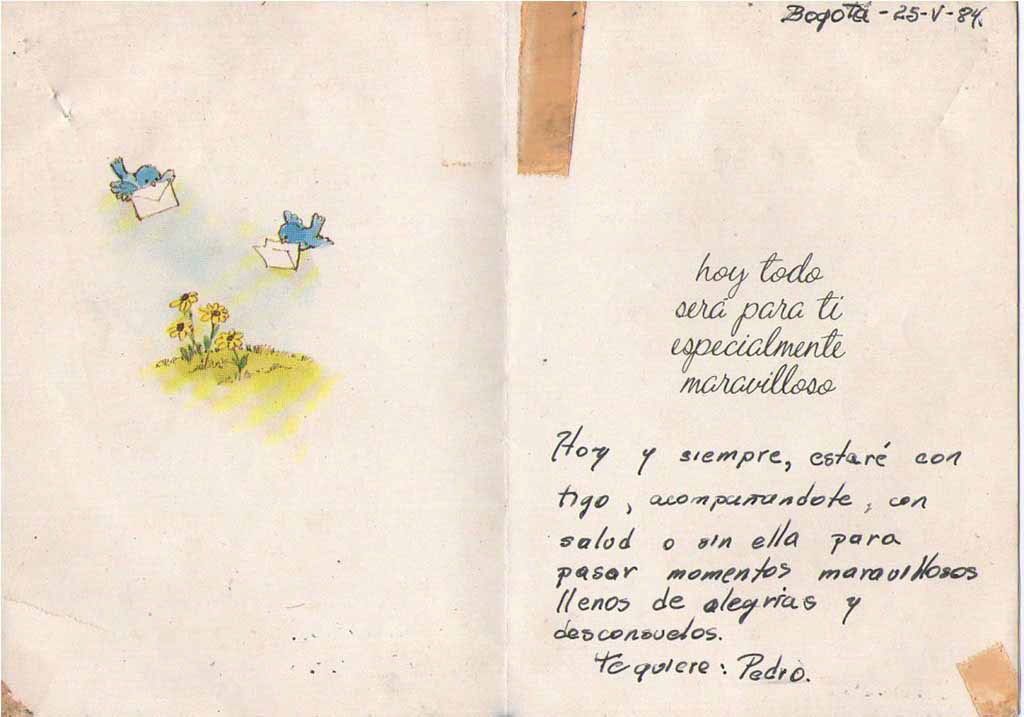 Bogotá - 25-V-84.
hoy todo
será para ti
especialmente
maravilloso
Hoy y siempre, estaré con
tigo, acompañandote, con
salud o sin ella para
pasar momentos maravillosos
llenos de alegrias y
desconsuelos.
te quiere: Pedro.